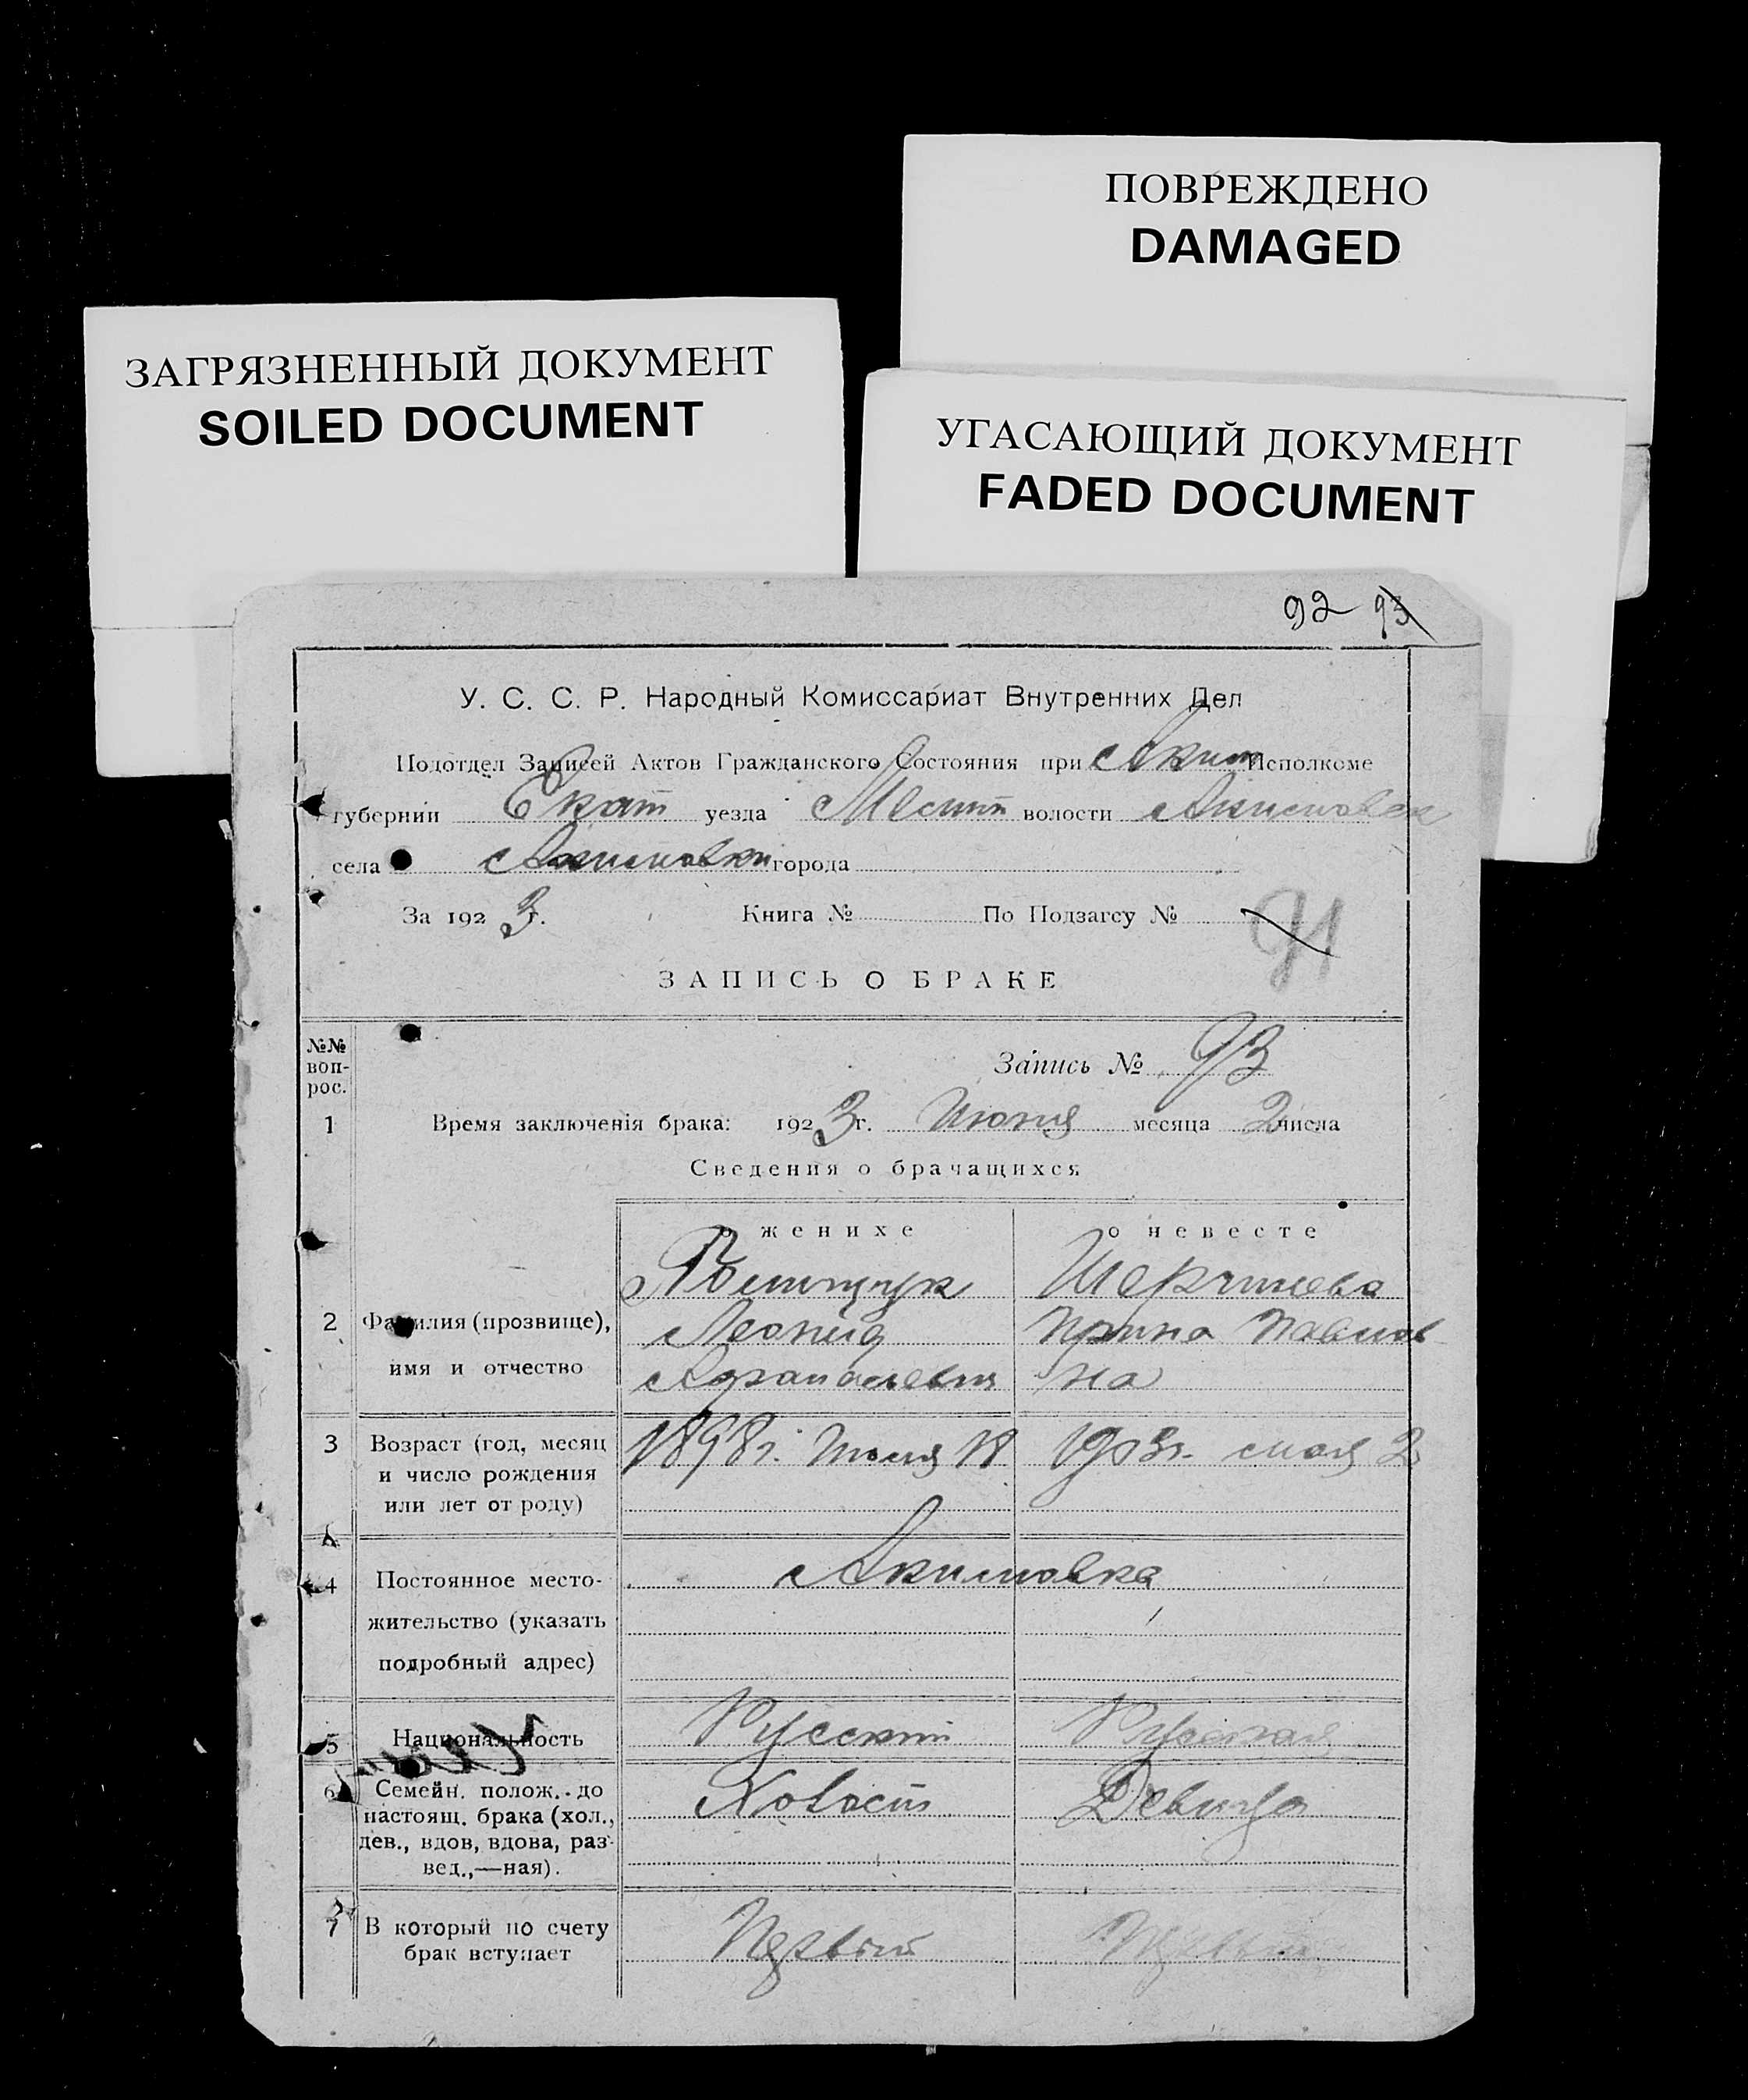 ПОВРЕЖДЕНО
DAMAGED
ЗАГРЯЗНЕННЫЙ ДОКУМЕНТ
SOILED DOCUMENT
УГАСАЮЩИЙ ДОКУМЕНТ
FADED DOCUMENT
92 93
У. С. С. Р. Народный Комиссариат Внутренних Дел
Подотдел Записей Актов Гражданского Состояния при Аким Исполкоме
губернии Екат уезда Мелит волости Акимовск
села Акимовки города
За 1923 г. Книга № По Подзагсу № 91
ЗАПИСЬ О БРАКЕ
№№ вопрос.
Запись № 93
1 Время заключенія брака: 1923 г. Июня месяца 2 числа
Сведения о брачащихся
о женихе о невесте
2 Фамилия (прозвище),
имя и отчество
Леонид Ирина Павлов
Афанасьевич на
3 Возраст (год, месяц
и число рождения
или лет от роду)
1898 г. Июня 18 1903 г. мая 2
4 Постоянное место-
жительство (указать
подробный адрес)
Акимовка
5 Национальность Русский Русская
6 Семейн. полож. до
настоящ. брака (хол.,
дев., вдов, вдова, раз-
вед.,—ная).
Холост Девица
7 В который по счету
брак вступает
Первый Первый